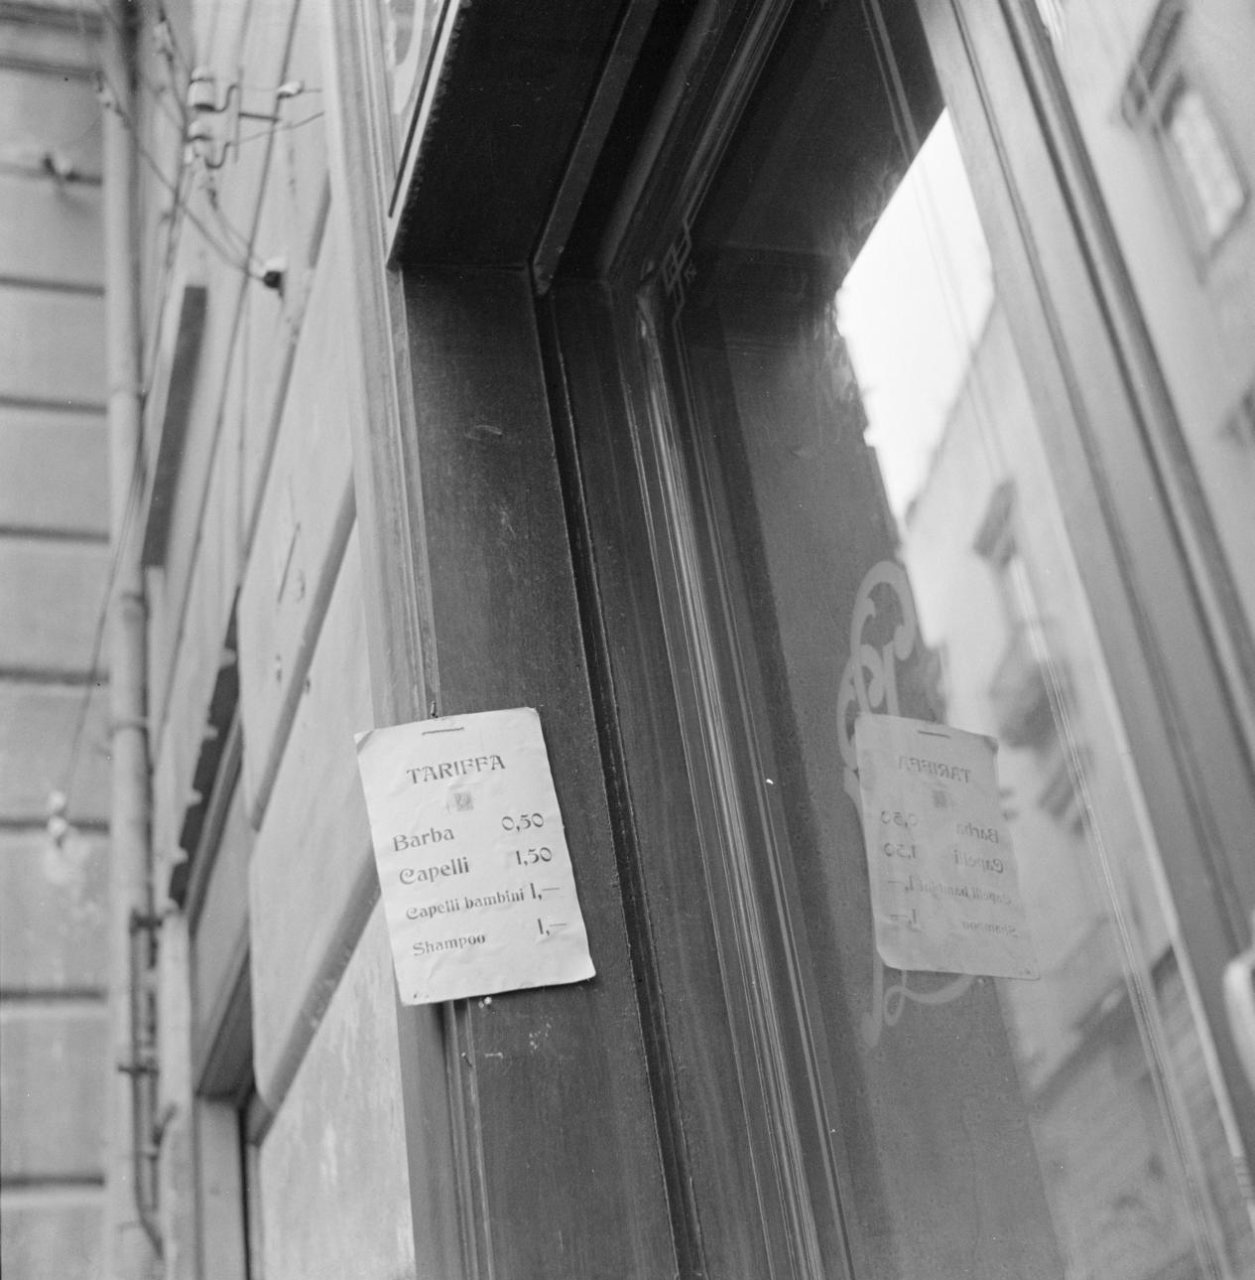 TARIFFA
Barba 0,50
Capelli 1,50
Capelli bambini 1,—
Shampoo 1,—